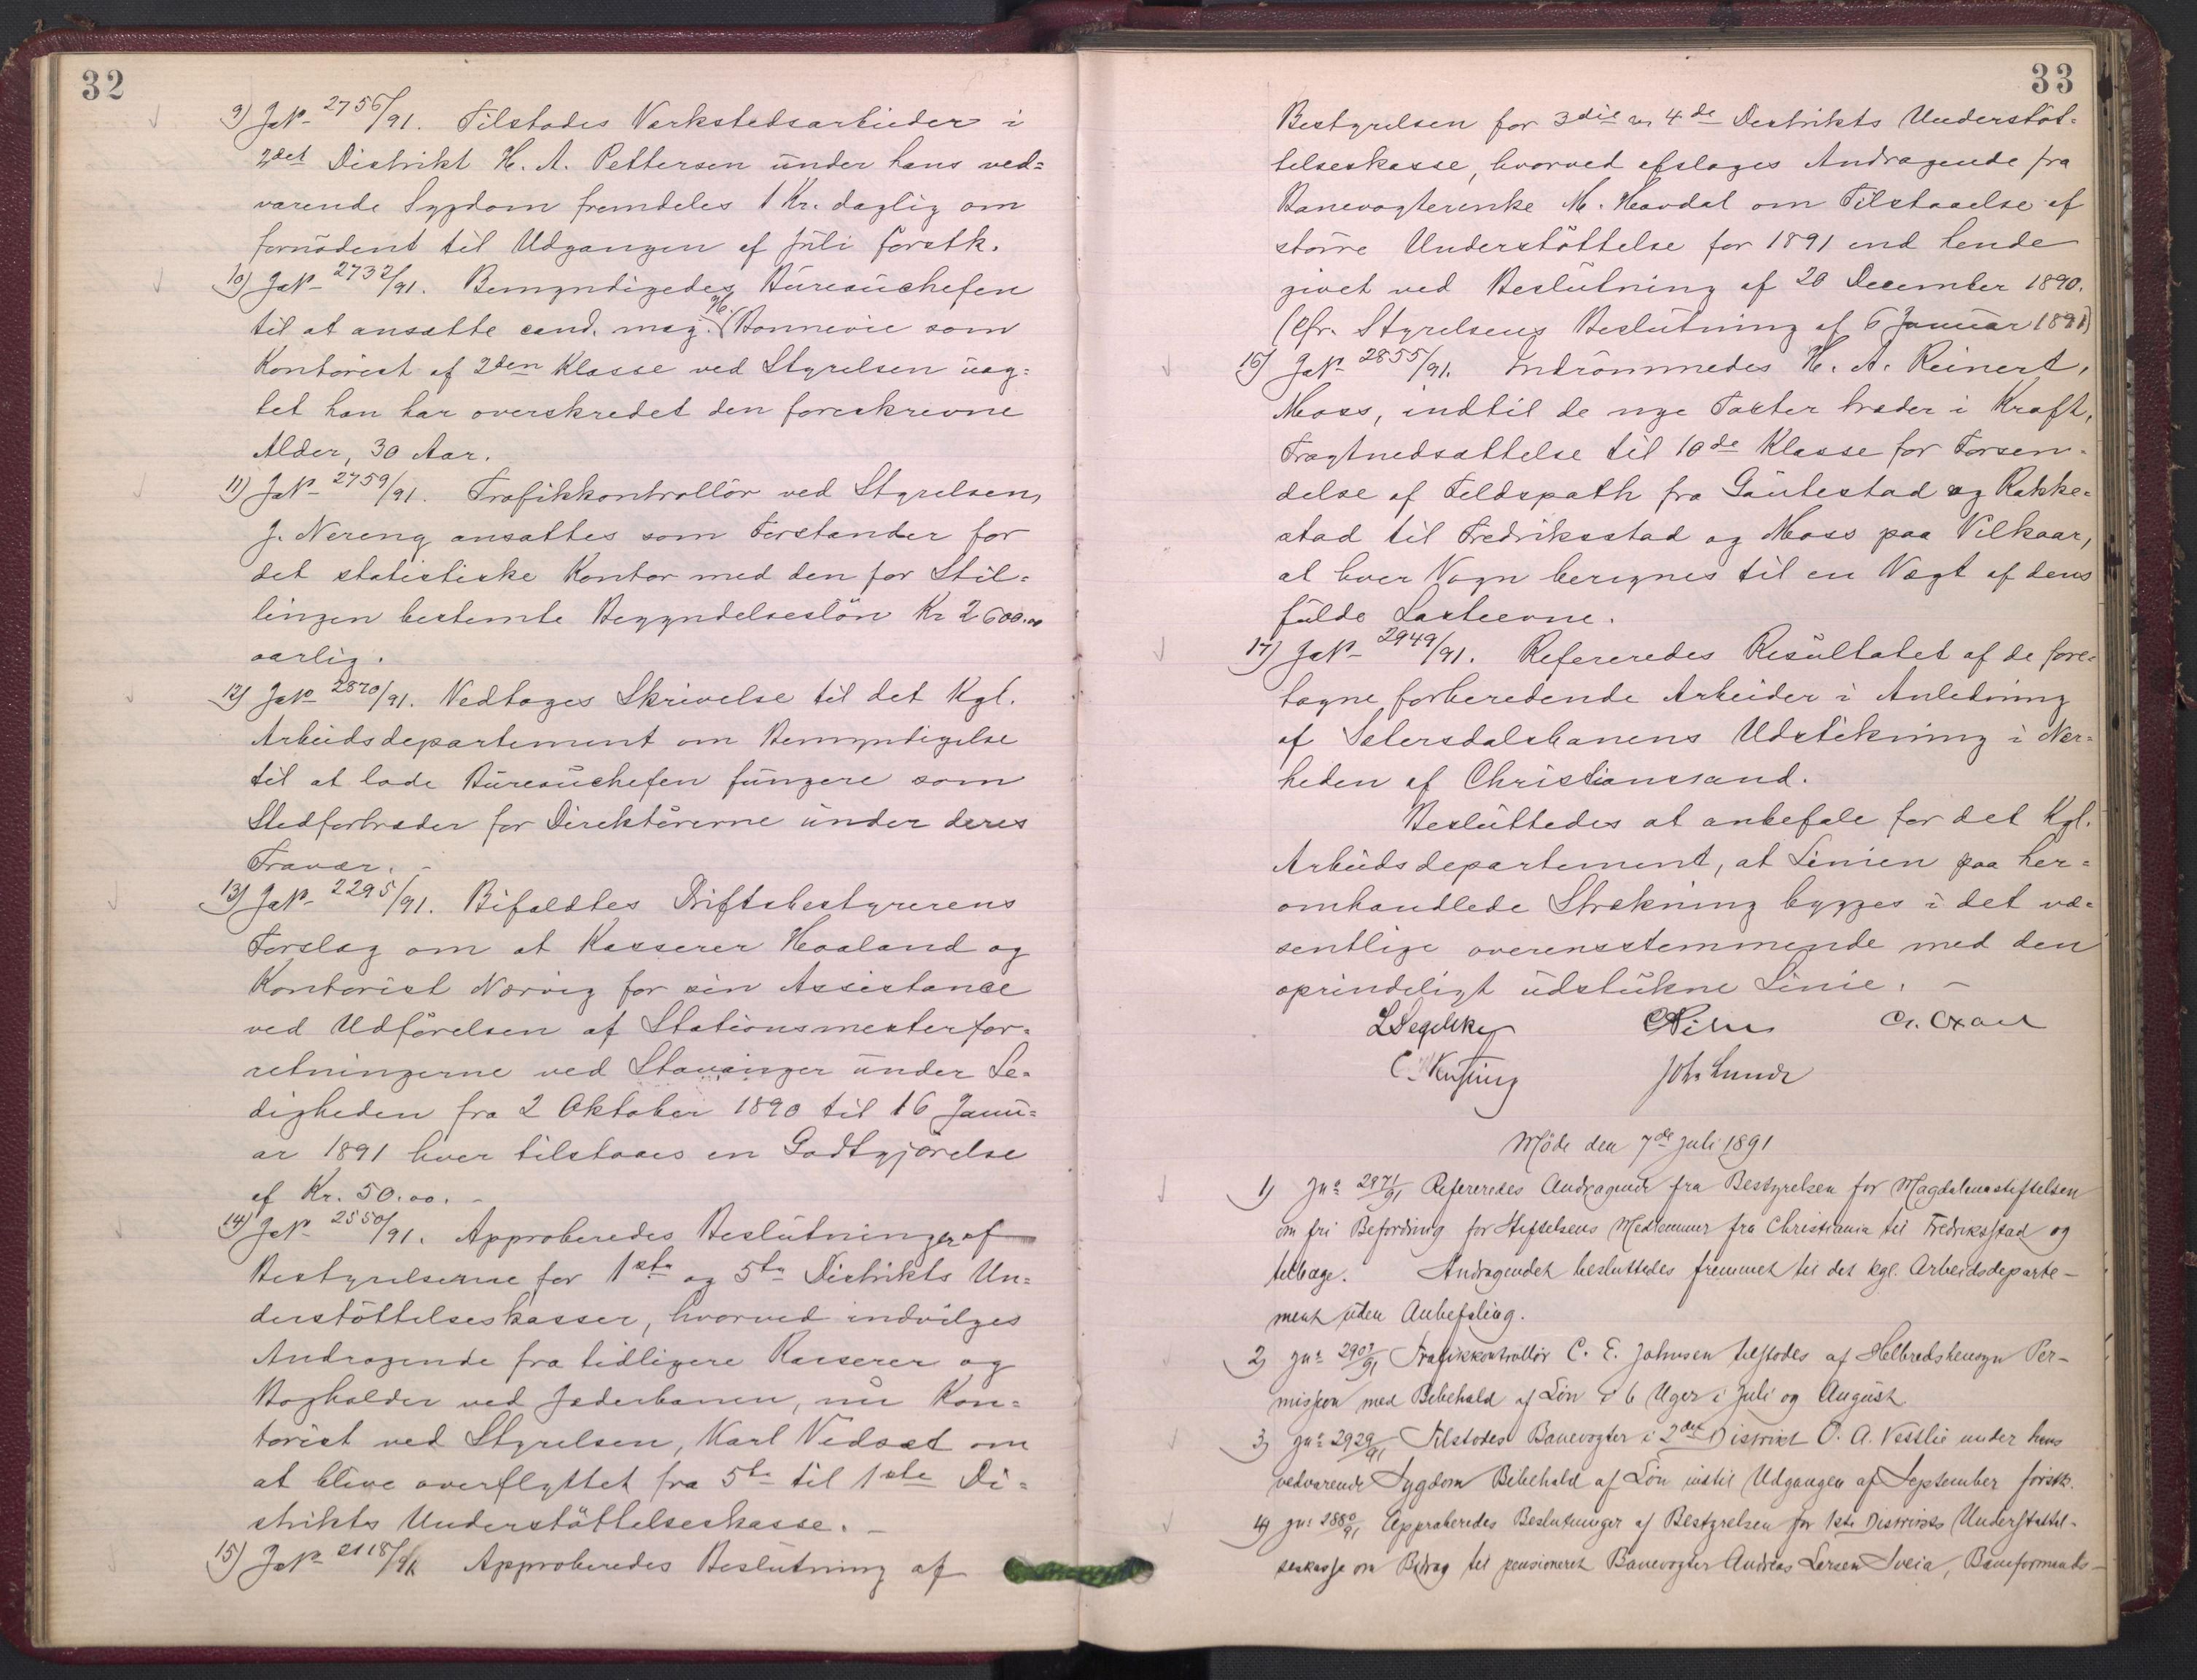 32
9) JN- 2756/91. Tilstodes Værkstedsarbeider i
2det Distrikt H. A. Pettersen under hans ved-
varende Sygdom fremdeles 1 Kr. daglig om
fornødent til Udgangen af Juli førstk.
10) JN- 2732/91. Bemyndigedes Bureauchefen
til at ansætte cand. mag. Bonnevie som
Kontorist af 2den Klasse ved Styrelsen uag-
tet han har overskredet den foreskrevne
Alder, 30 Aar.
11) JN- 2759/91. Trafikkontrollør ved Styrelsen,
J. Nereng ansattes som Forstander for
det statistiske Kontor med den for Stil-
lingen bestemte Begyndelsesløn Kr 2600.00
aarlig.
12) JN- 2870/91. Vedtoges Skrivelse til det Kgl.
Arbeidsdepartement om Bemyndigelse
til at lade Bureauchefen fungere som
Stedfortræder for Direktørerne under deres
Fravær. -
13) JN- 2295/91. Bifaldtes Driftsbestyrerens
Forslag om at Kasserer Haaland og
Kontorist Nærvig for sin Assistance
ved Udførelsen af Stationsmesterfor-
retningerne ved Stavanger under Le-
digheden fra 2 Oktober 1890 til 16 Janu-
ar 1891 hver tilstaaes en Godtgjørelse
af Kr. 50.00. -
14) JN- 2550/91. Approberedes Beslutninger af
Bestyrelserne for 1ste og 5te Distrikts Un-
derstøttelseskasser, hvorved indvilges
Andragende fra tidligere Kasserer og
Bogholder ved Jæderbanen, nu Kon-
torist ved Styrelsen, Karl Vidsæt om
at blive overflyttet fra 5te til 1ste Di-
strikts Understøttelseskasse. -
15) JN- 2118/91 Approberedes Beslutning af
33
Bestyrelsen for 3die og 4de Distrikts Understøt-
telseskasse, hvorved afslages Andragende fra
Banevogterenke M. Havdal om Tilstaaelse af
større Understøttelse for 1891 end hende
givet ved Beslutning af 20 December 1890.
(Cfr. Styrelsens Beslutning af 6 Januar 1891)
16) JN- 2855/91. Indrømmedes H. A. Reinert,
Moss, indtil de nye Taxter træder i Kraft,
Fragtnedsættelse til 10de Klasse for Forsen-
delse af Feldspath fra Gautestad og Rakke-
stad til Fredriksstad og Moss paa Vilkaar,
at hver Vogn beregnes til en Vægt af dens
fulde Lasteevne.
17) JN- 2949/91. Refereredes Resultatet af de fore-
tagne forberedende Arbeider i Anledning
af Sætersdalsbanens Udstikning i Nær-
heden af Christianssand.
Besluttedes at anbefale for det Kgl.
Arbeidsdepartement, at Linien paa her-
omhandlede Strækning bygges i det væ-
sentlige overensstemmende med den
oprindeligt udstukne Linie. -
L Segelcke CPihl
Joh. Lunde
Møde den 7de Juli 1891
1) Jnº 2871/91 Refereredes Andragende fra Bestyrelsen for Magdalenastiftelsen
om fri Befordring for Stiftelsens Medlemmer fra Christiania til Fredriksstad og
tilbage. Andragendet besluttedes fremmet til det kgl. Arbeidsdeparte-
ment uden Anbefaling.
2) Jnº 2907/91 Trafikkontrollør C. E. Johnsen tilstodes af Helbredshensyn Per-
mission med Bibehold af Løn i 6 Uger i Juli og August
3) Jnº 2929/91 Tilstodes Banevogter i 2det Distrikt O. A. Vestlie under hans
vedvarende Sygdom Bibehold af Løn indtil Udgangen af September førstk.
4) Jnº 2880/91 Approberedes Beslutninger af Bestyrelsen for 1ste Distrikts Understøttel-
seskasse om Bidrag til pensioneret Banevogter Andreas Larsen Sveia, Baneformands-